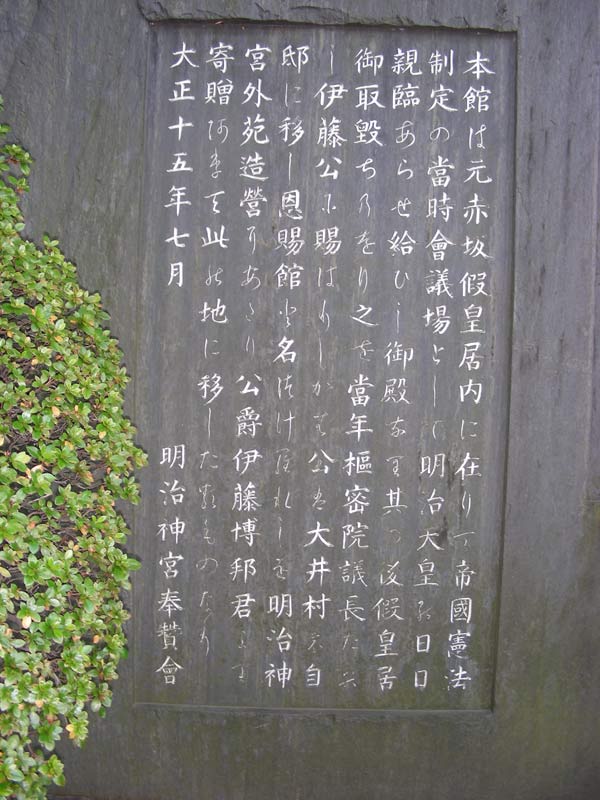 本館は元赤坂假皇居内に在りて帝國憲法
制定の當時會議場として明治天皇の日日
親臨あらせ給ひし御殿なり其の後假皇居
御取毀ちのをり之を當年樞密院議長たり
し伊藤公に賜はりしかば公は大井村の自
邸に移し恩賜館と名づけられしを明治神
宮外苑造營にあたり公爵伊藤博邦君より
寄贈ありて此の地に移したるものなり
大正十五年七月
明治神宮奉賛會